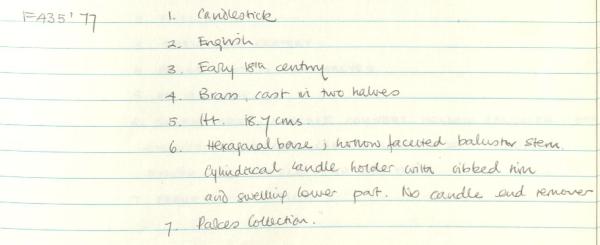 FA35'77 1. Candlestick
2. English
3. Early 18th century
4. Brass, cast in two halves
5. Ht. 18.7 cms
6. Hexagonal base; hollow facetted baluster stem.
Cylindrical candle holder with ribbed rim
and swelling lower part. No candle end remover
7. Collection.